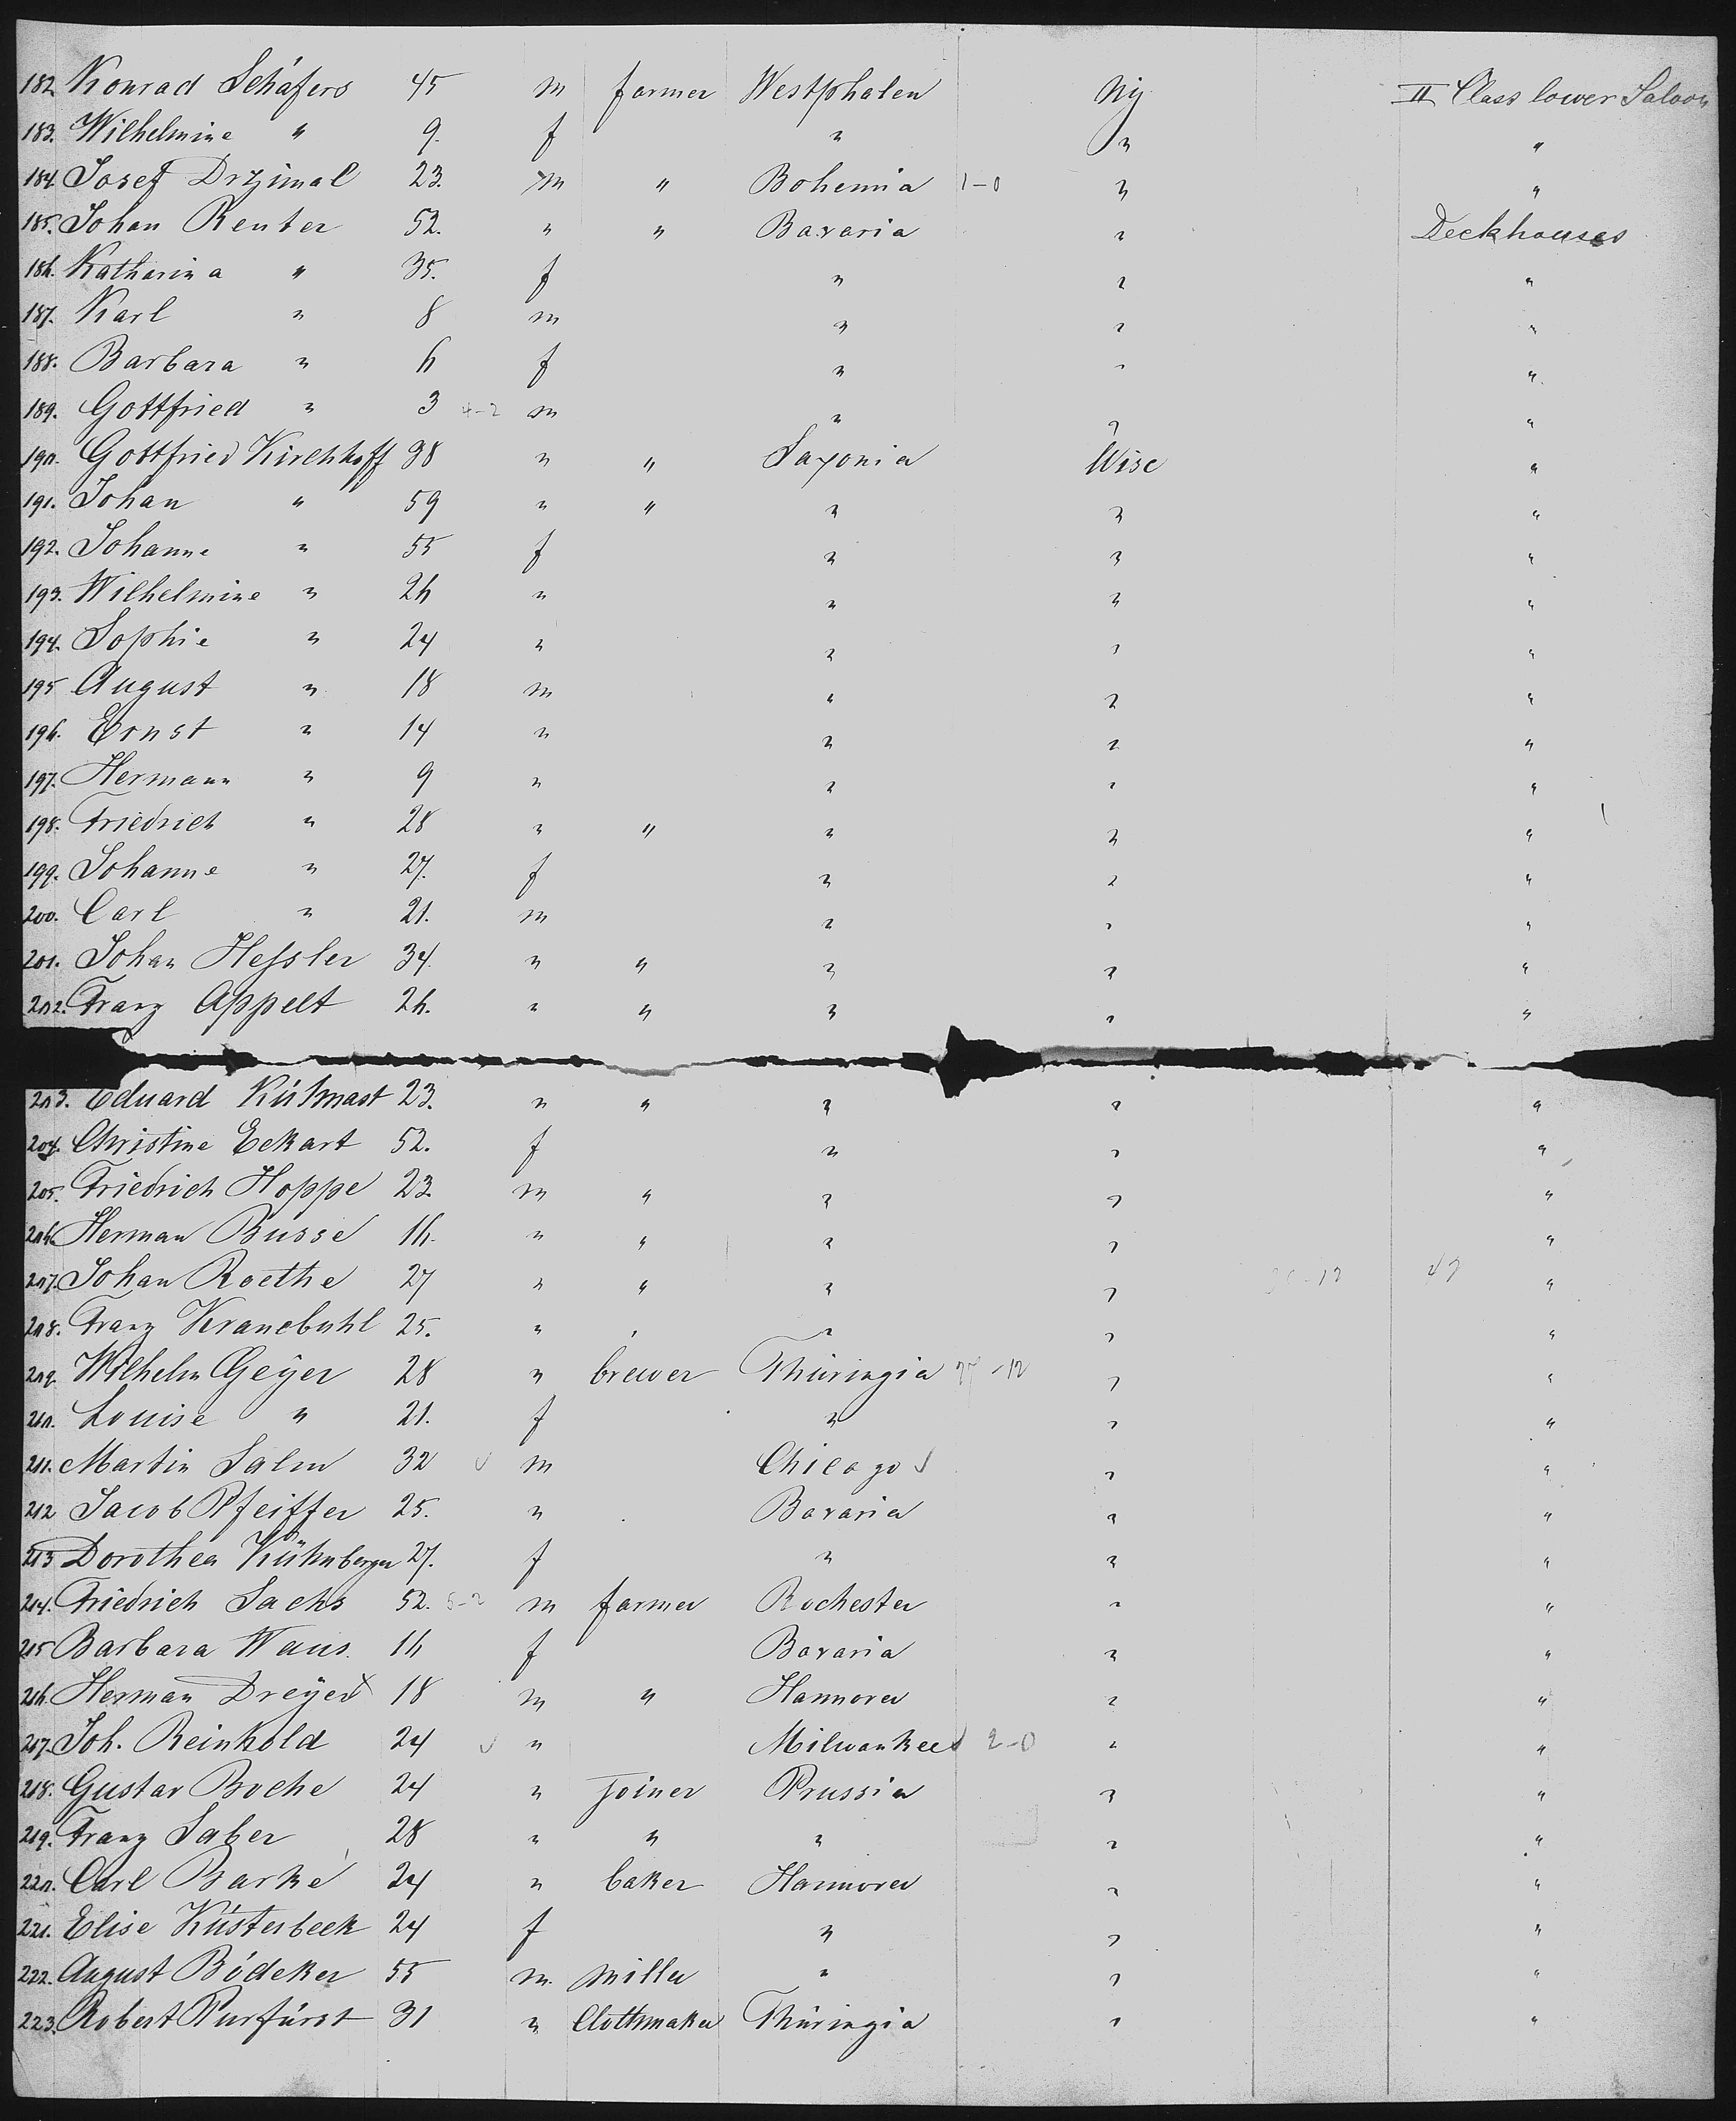 182. Konrad Schäfers 45 m farmer Westphalen Ny II Class lower Saloon
183. Wilhelmine " 9. f " " "
184. Josef Drzimal 23. m " Bohemia 1-0 " "
185. Johan Renter 52. " " Bavaria " Deckhouses
186. Katharina " 35. f " " "
187. Karl " 8 m " " "
188. Barbara " 6 f " " "
189. Gottfried " 3 4-2 m " " "
190. Gottfried Kirchhoff 38 " " Saxonia Wisc "
191. Johan " 59 " " " " "
192. Johanne " 55 f " " "
193. Wilhelmine " 26 " " " "
194. Sophie " 24 " " " "
195 August " 18 m " " "
196. Ernst " 14 " " " "
197. Hermann " 9 " " " "
198. Friedrich " 28 " " " " "
199. Johanne " 27. f " " "
200. Carl " 21. m " " "
201. Johan Hessler 34. " " " " "
202. Franz Appelt 26. " " " " "
203. Eduard Kühnast 23. " " " " "
204. Christine Eckart 52. f " " "
205. Friedrich Hoppe 23. m " " " "
206. Herman Busse 16. " " " " "
207. Johan Roethe 27 " " " " "
208. Franz Kranebuhl 25. " " " " "
209. Wilhelm Geÿer 28 " brewer Thüringia " "
210. Louise " 21. f " " "
211. Martin Salm 32 m Chicago " "
212 Jacob Pfeiffer 25. " Bavaria " "
213 Dorothea Kühnberger 27. f " " "
214. Friedrich Sachs 52. 5-2 m farmer Rochester " "
215 Barbara Waus. 16 f Bavaria " "
216. Herman Dreÿer 18 m " Hannover " "
217. Joh. Reinhold 24 " Milwaukee 2-0 " "
218. Gustav Boche 24 " joiner Prussia " "
219. Franz Saber 28 " " " " "
220. Carl Barke 24 " baker Hannover " "
221. Elise Küsterbeck 24 f " " "
222. August Bödeker 55 m. miller " " "
223. Robert Purfürst 31 " Clothmaker Thüringia " "